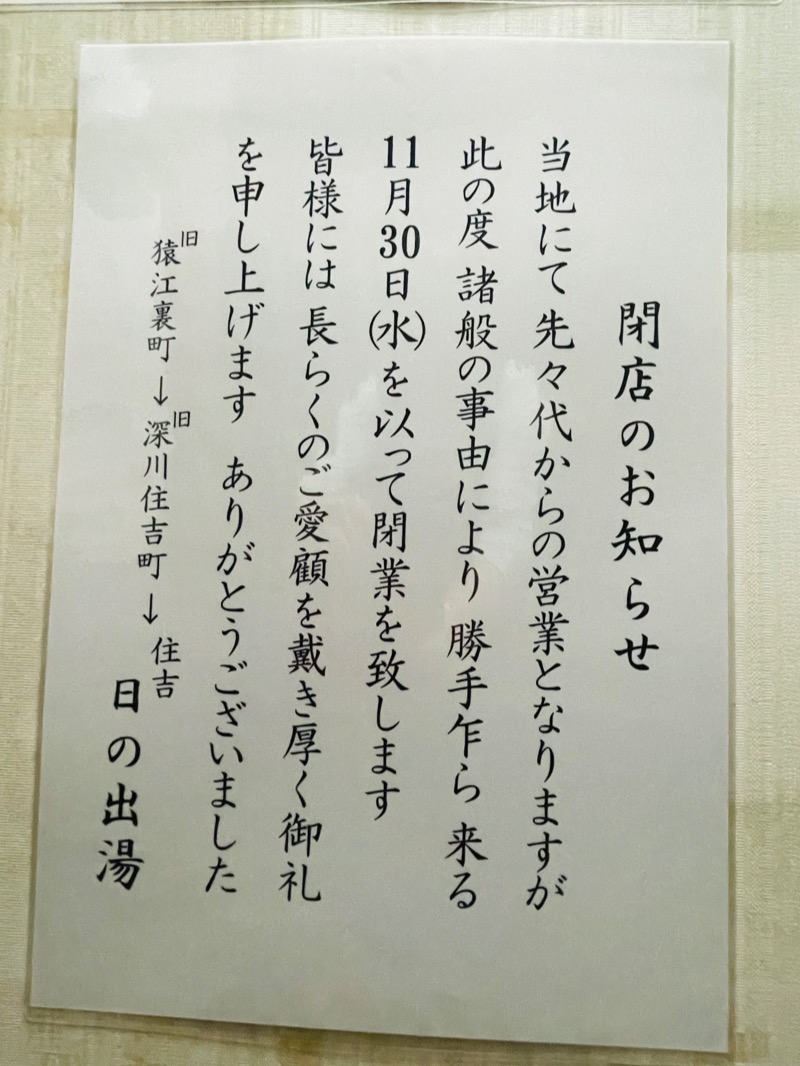 閉店のお知らせ
当地にて 先々代からの営業となりますが
此の度 諸般の事由により 勝手乍ら 来る
11月30日(水)を以って閉業を致します
皆様には 長らくのご愛顧を戴き厚く御礼
を申し上げます ありがとうございました
旧猿江裏町→旧深川住吉町→住吉
日の出湯